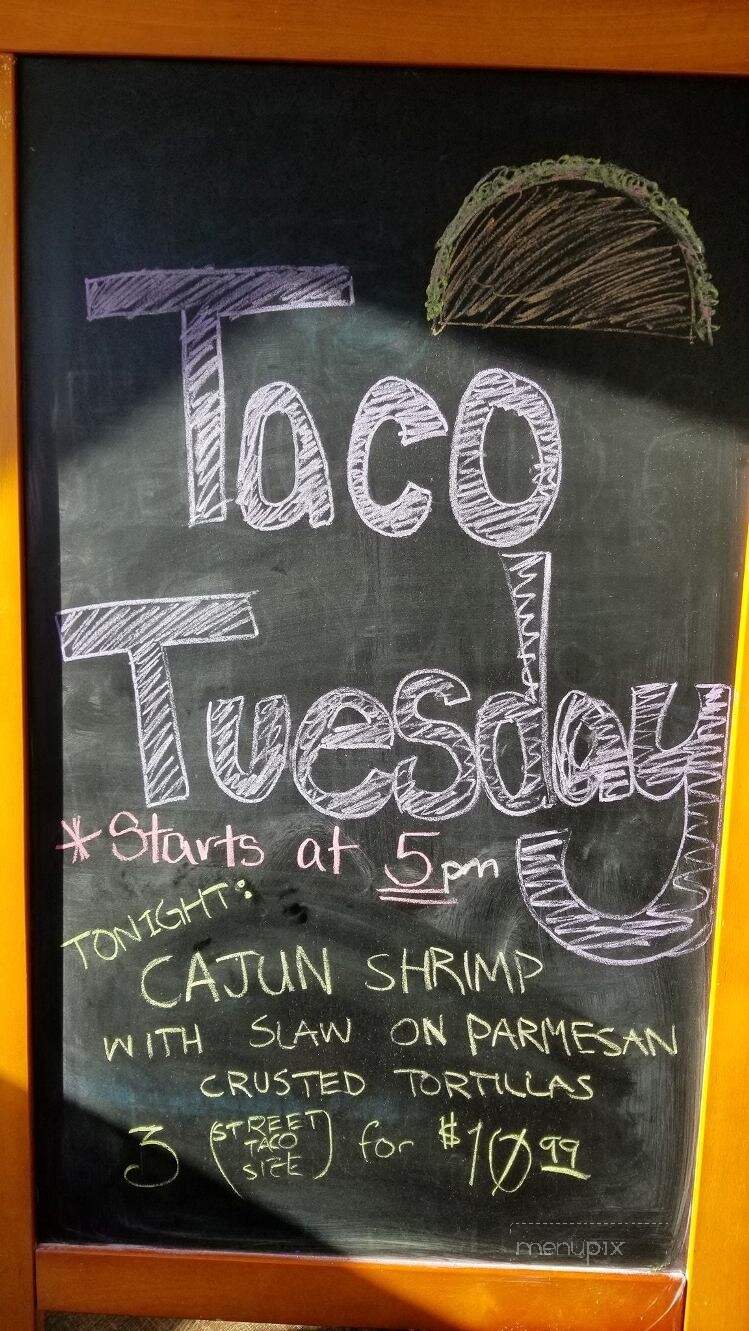 Taco
Tuesday
*Starts at 5pm
TONIGHT:
CAJUN SHRIMP
WITH SLAW ON PARMESAN
CRUSTED TORTILLAS
3 (STREET TACO SIZE) for $10.99
menupix